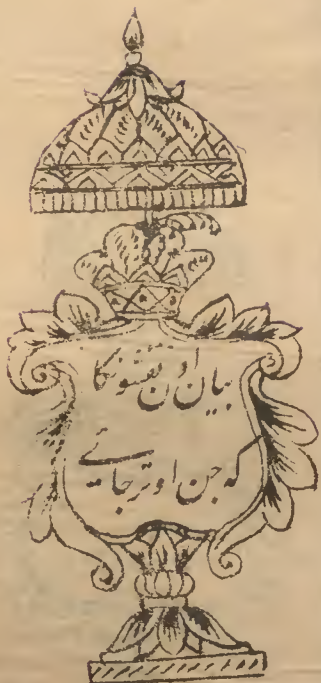 بیان اون نقشونکا
کہ جن اوتر جائے